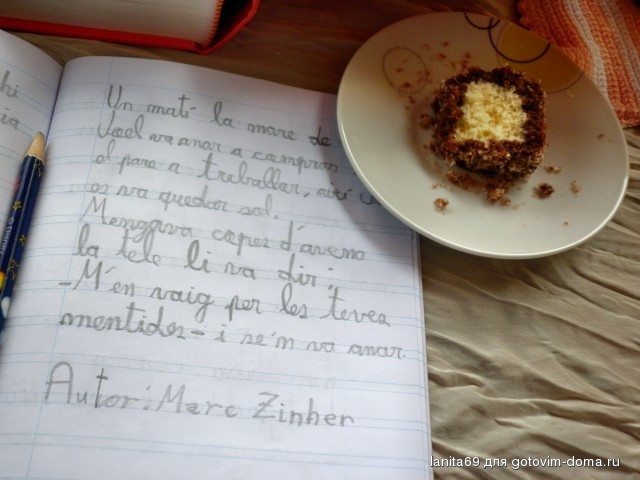 hi
ia
Un matí la mare de
Joel va anar a comprar
el pare a treballar, així
es va quedar sol.
Menjava copes d'avena
la tele li va dir:
-M'en vaig per les teves
mentides- i se'n va anar.
Autor: Marc Zinher
lanita69 для gotovim-doma.ru